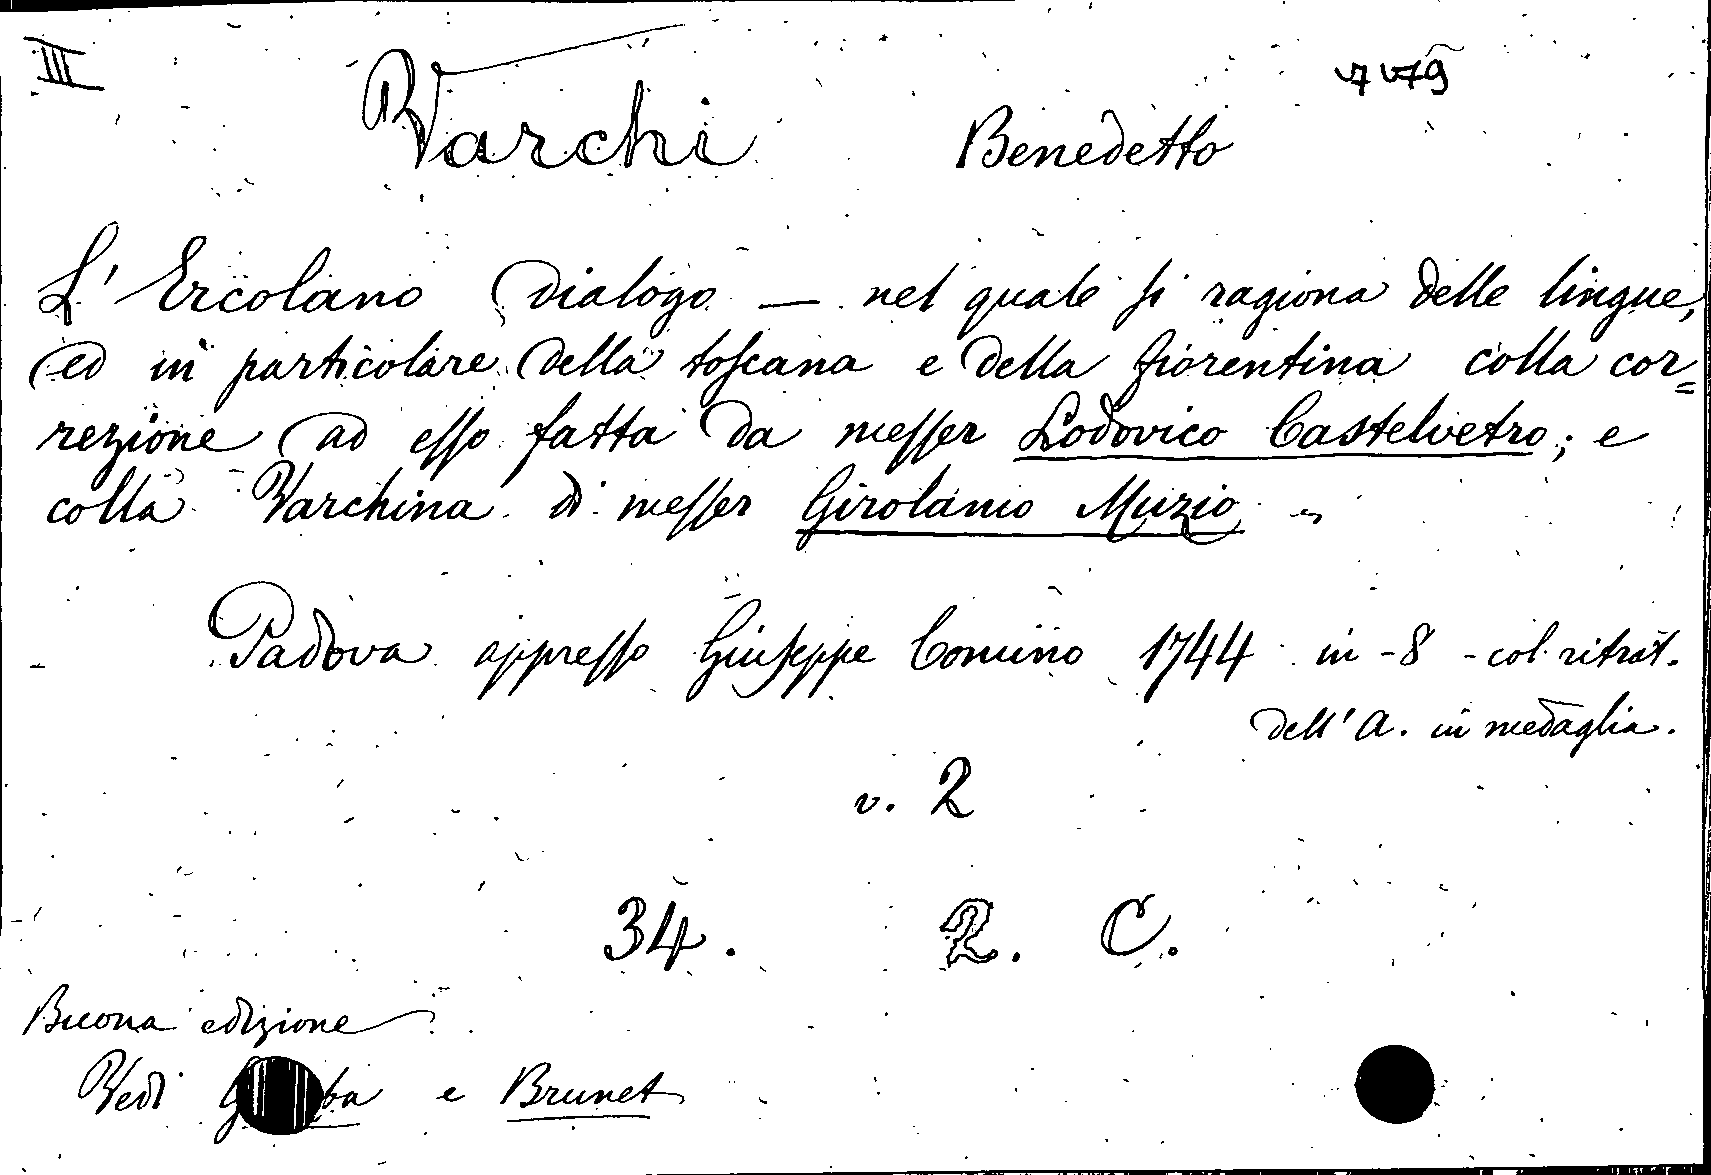 III
7179
Varchi Benedetto
L' Ercolano Dialogo — nel quale si ragiona delle lingue,
ed in particolare della toscana e della fiorentina colla cor=
rezione ad esso fatta da messer Lodovico Castelvetro; e
colla Varchina di messer Girolamo Muzio
Padova appresso Giuseppe Comino 1744 in-8 - col ritrat.
dell' A. in medaglia.
v. 2
34. 2. C.
Buona edizione
Vedi e Brunet